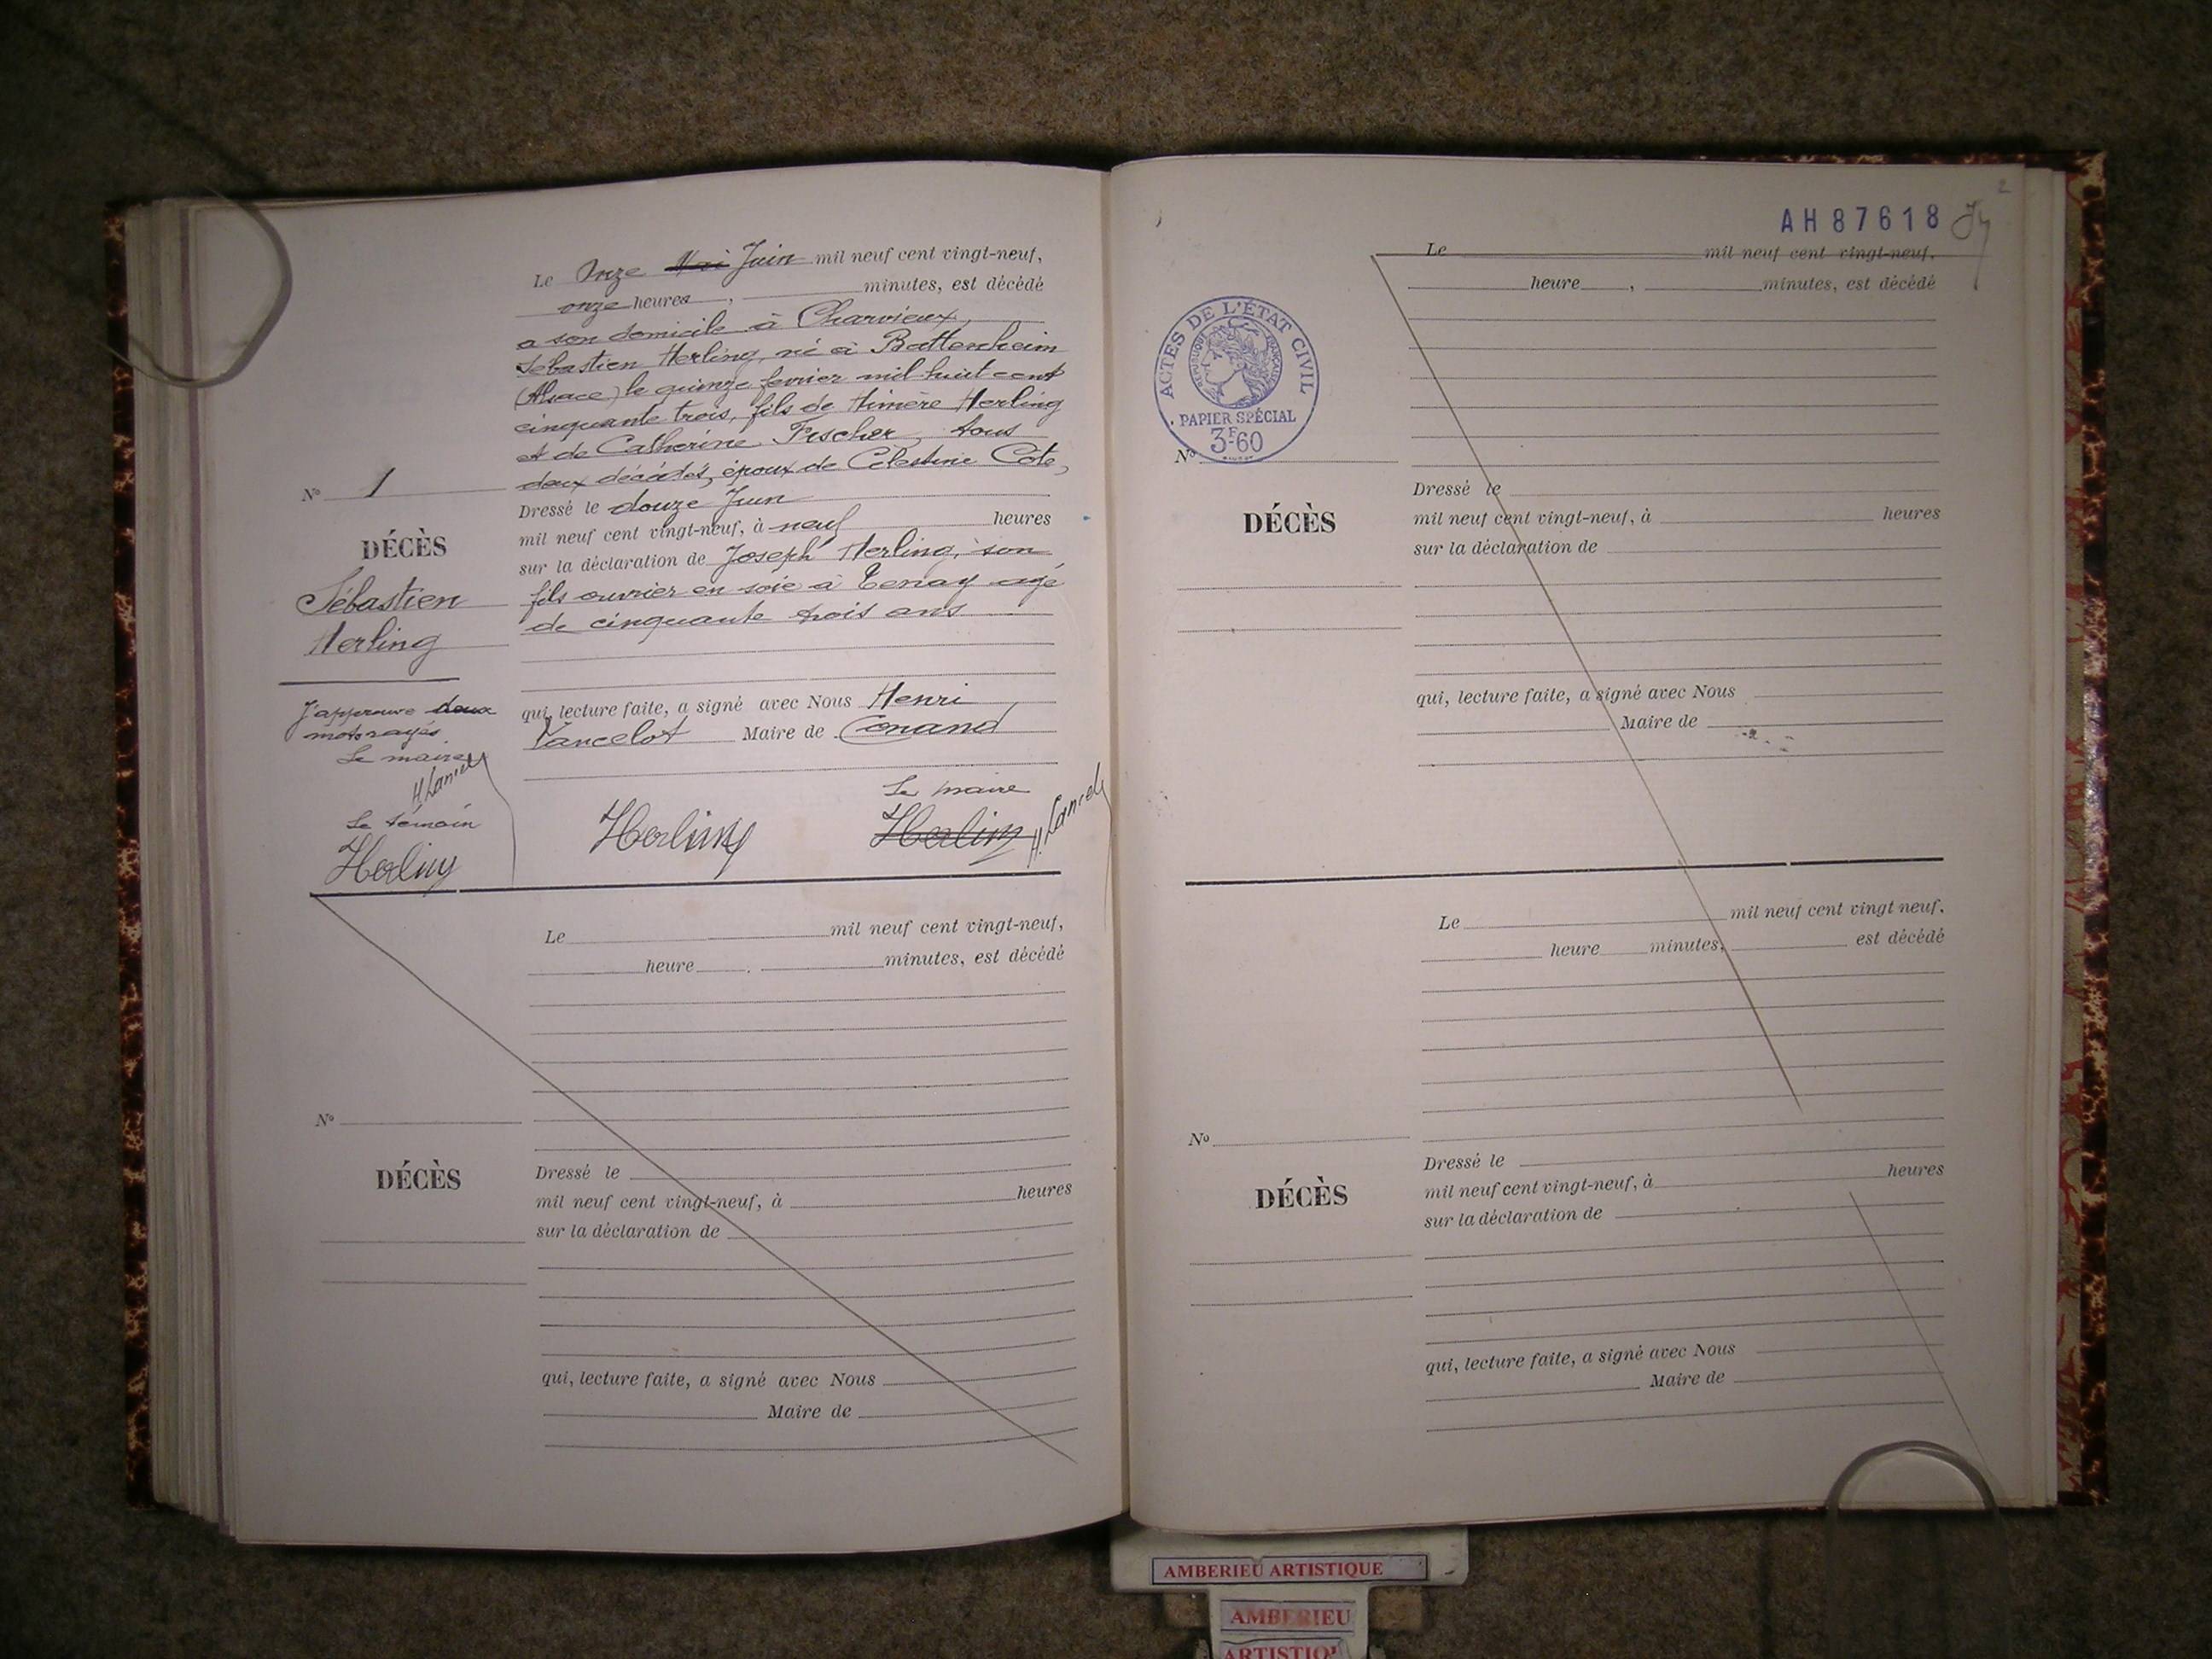 Le Onze Mai Juin mil neuf cent vingt-neuf,
onze heures, minutes, est décédé
a son domicile à Charvieux,
Sébastien Herling, né à Battenheim
(Alsace) le quinze fevrier mil huit cent
cinquante trois, fils de Himère Herling
et de Catherine Fischer, tous
deux décédés, époux de Célestine Cote,
Dressé le douze Juin
mil neuf cent vingt-neuf, à neuf heures
sur la déclaration de Joseph Herling, son
fils ouvrier en soie à Tenay agé
de cinquante trois ans
qui, lecture faite, a signé avec Nous Henri
Lancelot Maire de Conand
Le maire
Herling
Herling
H. Lancel
No 1
DÉCÈS
Sébastien
Herling
J'approuve deux
mots rayés
Le maire
H. Lancel
Le témoin
Herling
Le mil neuf cent vingt-neuf,
heure , minutes, est décédé
No
DÉCÈS
Dressé le
mil neuf cent vingt-neuf, à heures
sur la déclaration de
qui, lecture faite, a signé avec Nous
Maire de
2
AH87618
ACTES DE L'ÉTAT CIVIL
RÉPUBLIQUE FRANÇAISE
PAPIER SPÉCIAL
3F60
Le mil neuf cent vingt-neuf,
heure , minutes, est décédé
No
DÉCÈS
Dressé le
mil neuf cent vingt-neuf, à heures
sur la déclaration de
qui, lecture faite, a signé avec Nous
Maire de
Le mil neuf cent vingt neuf,
heure minutes, est décédé
No
DÉCÈS
Dressé le
mil neuf cent vingt-neuf, à heures
sur la déclaration de
qui, lecture faite, a signé avec Nous
Maire de
AMBERIEU ARTISTIQUE
AMBERIEU